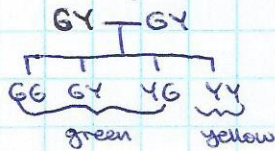 GY — GY
GG GY YG YY
green yellow